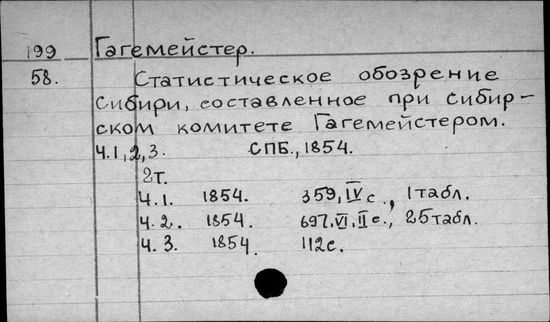 199 Гагемейстер.
58. Статистическое обозрение
Сибири, составленное при Сибир-
ском комитете Гагемейстером.
Ч.1,2,3. СПБ., 1854.
2т.
Ч.1. 1854. 359, IV с., 1 табл.
Ч.2. 1854. 697, VI, II с., 25 табл.
Ч.3. 1854. 112с.